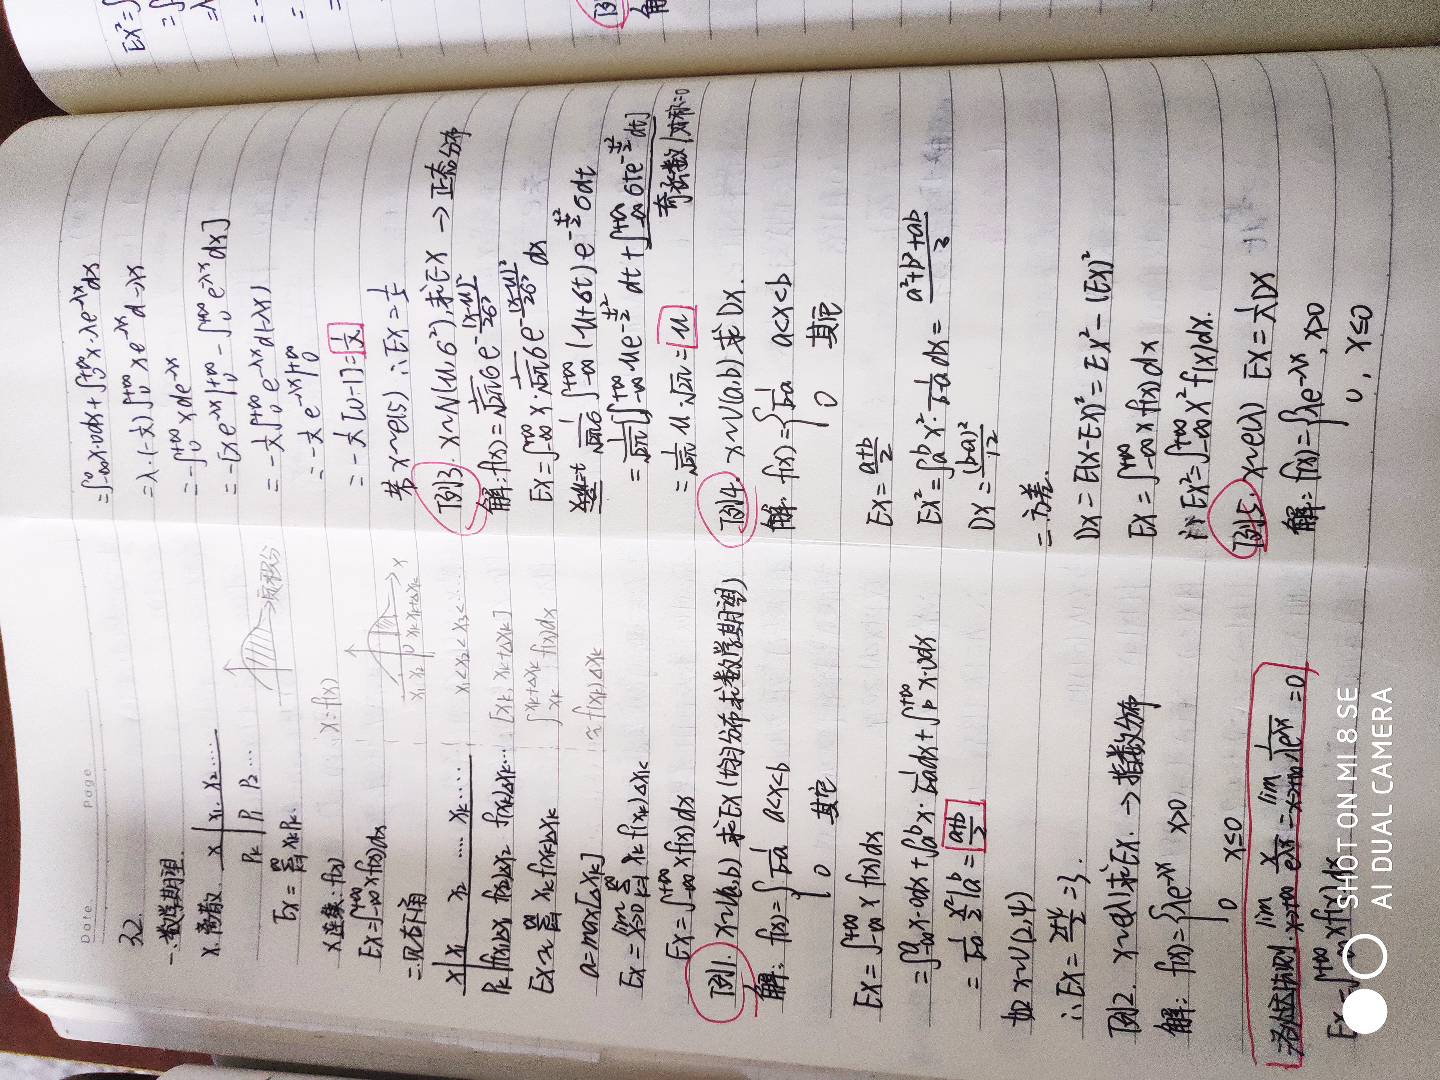 Date.    Page
3.2.
一.数学期望.
X.离散. X | X₁. X₂ ....
Pk | P₁ P₂ ...
→质积分
EX = ∑ₖ₌₁^∞ XkPk.
X连续:f(x)    X=f(x)
EX=∫₋∞^+∞ xf(x)dx
X₁ X₂ 0 Xk Xk+ΔXk X
二.见右下角
X | X₁ X₂ .... Xk.....    X₁<X₂<X₃<....
Pk | f(x₁)ΔX₁ f(x₂)ΔX₂ f(xk)ΔXk...    [Xk, Xk+ΔXk]
EX≈ ∑ₖ₌₁^∞ Xkf(xk)ΔXk    ∫_Xk^(Xk+ΔXk) f(x)dx
a=max[ΔXk]    ≈f(Xk)ΔXk
EX= lim_(x→0) ∑ₖ₌₁^∞ Xk f(xk)ΔXk
EX=∫₋∞^+∞ xf(x)dx
例1. X~U(a,b) 求EX(均匀分布求数学期望)
解: f(x)={ 1/(b-a)  a<x<b
0  其它
EX=∫₋∞^+∞ x f(x)dx
=∫₋∞^a x·0dx+∫a^b x· 1/(b-a) dx+∫b^+∞ x·0dx
= 1/(b-a) x²/2 |a^b = (a+b)/2
如 X~U(2,4)
∴EX= (2+4)/2 =3.
例2. X~e(λ)求EX. →指数分布
解: f(x)={ λe^-λx  x>0
0  x≤0
洛必达法则. lim_(x→+∞) x/e^λx = lim_(x→+∞) 1/λe^λx =0
EX=∫₋∞^+∞ xf(x)dx
=∫₋∞^0 x·0dx+∫0^+∞ x·λe^-λx dx
=λ·(-1/λ)∫0^+∞ xe^-λx d-λx
=-∫0^+∞ xde^-λx
=-[xe^-λx|0^+∞ - ∫0^+∞ e^-λx dx]
=-1/λ∫0^+∞ e^-λx d(-λx)
=-1/λ e^-λx|0^+∞
=-1/λ[0-1]= 1/λ
若 X~e(5) ∴EX= 1/5
例3. X~N(μ,σ²),求EX →正态分布
解:f(x)= 1/√2πσ e^-(x-μ)²/2σ²
EX=∫₋∞^+∞ x· 1/√2πσ e^-(x-μ)²/2σ² dx
x-μ/σ=t 1/√2πσ ∫₋∞^+∞ (μ+σt)e^-t²/2 σdt
= 1/√2π [∫₋∞^+∞ μe^-t²/2 dt+∫₋∞^+∞ σte^-t²/2 dt]
奇函数/对称=0
= 1/√2π μ·√2π = μ
例4. X~U(a,b)求DX.
解. f(x)={ 1/(b-a)  a<x<b
0  其它
EX= (a+b)/2
EX²=∫a^b x²· 1/(b-a) dx= (a²+b²+ab)/3
DX= (b-a)²/12
二.方差.
DX=E(X-EX)²=EX²-(EX)²
EX=∫₋∞^+∞ xf(x)dx
EX²=∫₋∞^+∞ x²f(x)dx.
例5. X~e(λ) EX= 1/λ DX
解:f(x)={ λe^-λx, x>0
0, x≤0
EX²=∫
=∫
SHOT ON MI 8 SE
AI DUAL CAMERA